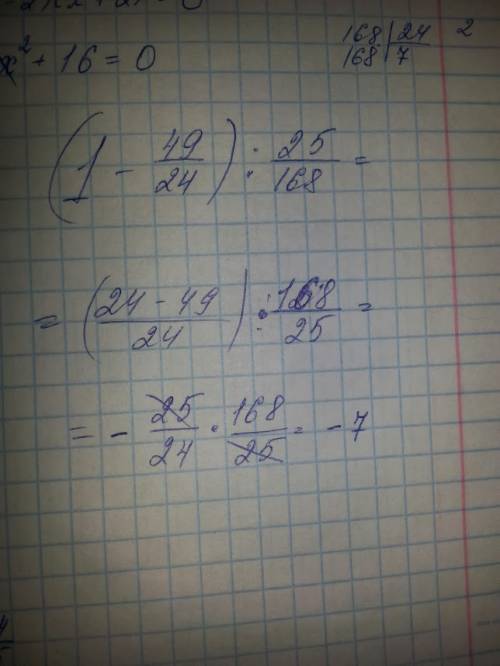 x² + 16 = 0
168 | 24 2
168 7
(1 - 49/24) : 25/168 =
= ((24 - 49)/24) · 168/25 =
= - 25/24 · 168/25 = - 7